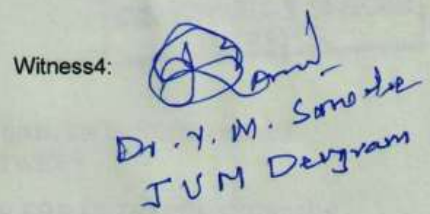 Witness4:
Dr. Y. M. Sonotke
JVM Devgram